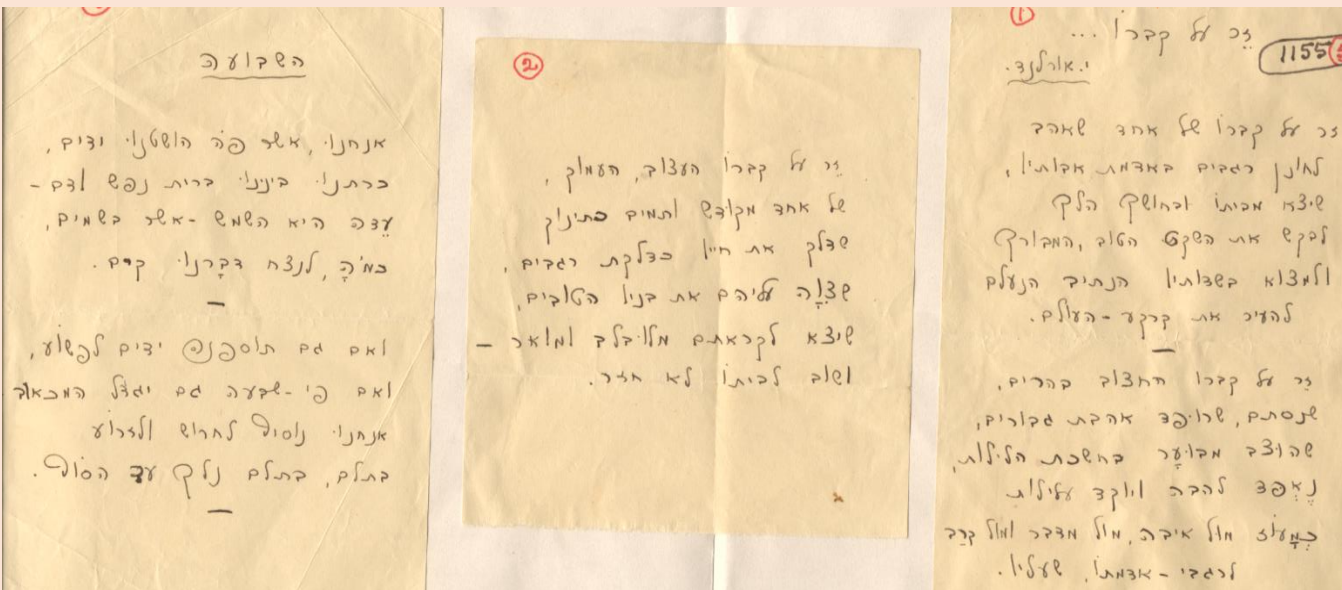 1
זֵר על קברוֹ ...
1155
י. אורלנד.
זר על קברוֹ של אחד שאהב
לחונן רגבים באדמת אבותיו,
שיצא מביתוֹ ובחושך הלך
לבקש את השקט הטוב, המבורך
ולמצוא בשדותיו הנתיב הנעלם
להעיר את קרקע-העולם.
–
זֵר על קברו החצוב בהרים,
שנסתם, שרופד אהבת גבורים,
שהוצב מבוֹעָר בחשכת הלילות,
נֶאְפד להבה ויוקד עלילות
כְּמָעוֹז מול איבה, מול מדבר ומול קרָב
לרגבי-אדמתוֹ, שעליו.
2
זֵר על קברוֹ העצוב, העמוק,
של אחד מקודש ותמים כתינוק
שדלק את חייו כדלקת רגבים,
שצִוָּה עליהם את בניו הטובים,
שיצא לקראתם מלובלב ומואר –
ושוב לביתוֹ לא חזר.
השבועה
אנחנו, אשר פֹּה הושטנו ידים,
כרתנו בינינו ברית נפש ודם -
עֵדה היא השמש -אשר בשמים,
כמוֹהָ, לנצח דבָרנו קים.
–
ואם גם תוספנה ידים לפשוֹע,
ואם פי-שבעה גם יגדל המכאוב
אנחנו נוסיף לחרוש ולזרוֹע
בתלם, בתלם נלך עד הסוֹף.
–